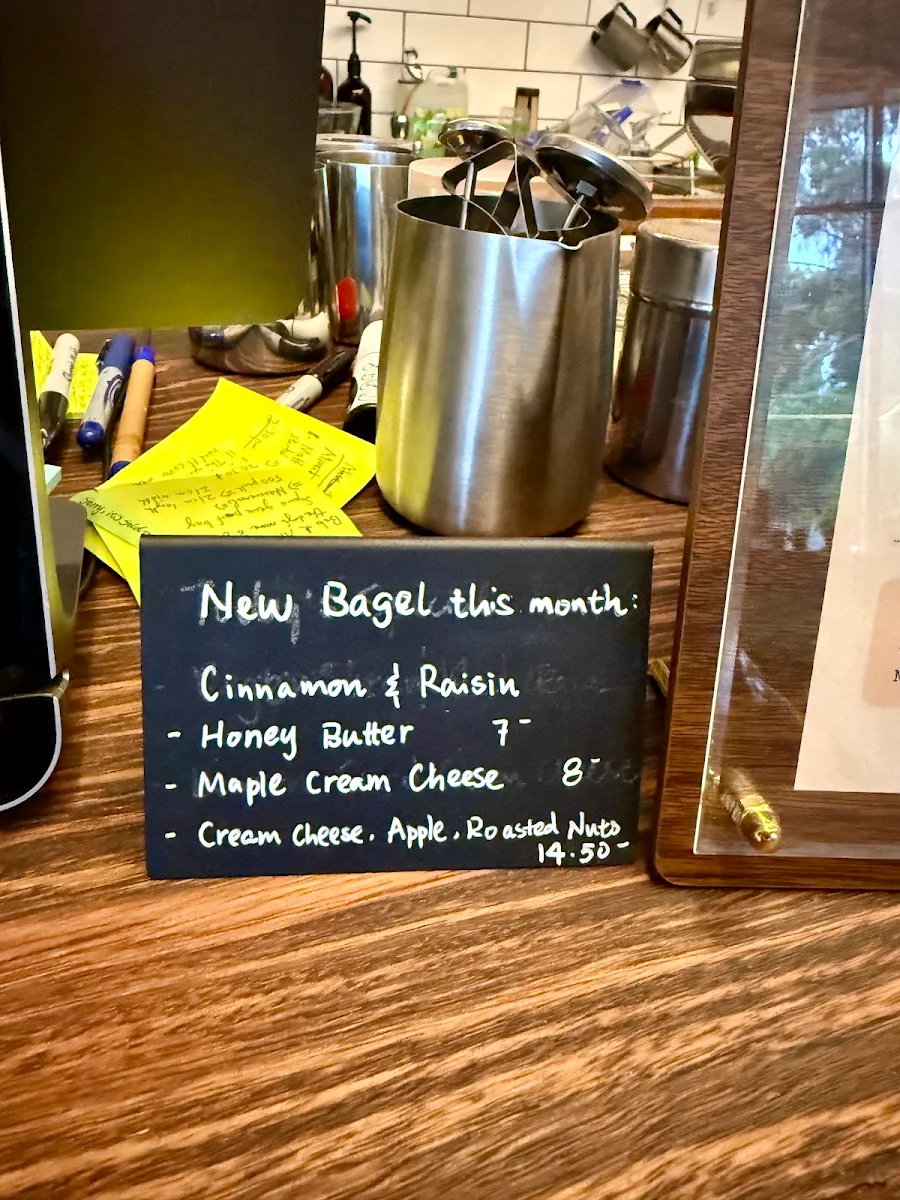 New Bagel this month:
Cinnamon & Raisin
- Honey Butter 7-
- Maple Cream Cheese 8-
- Cream Cheese, Apple, Roasted Nuts
14.50-